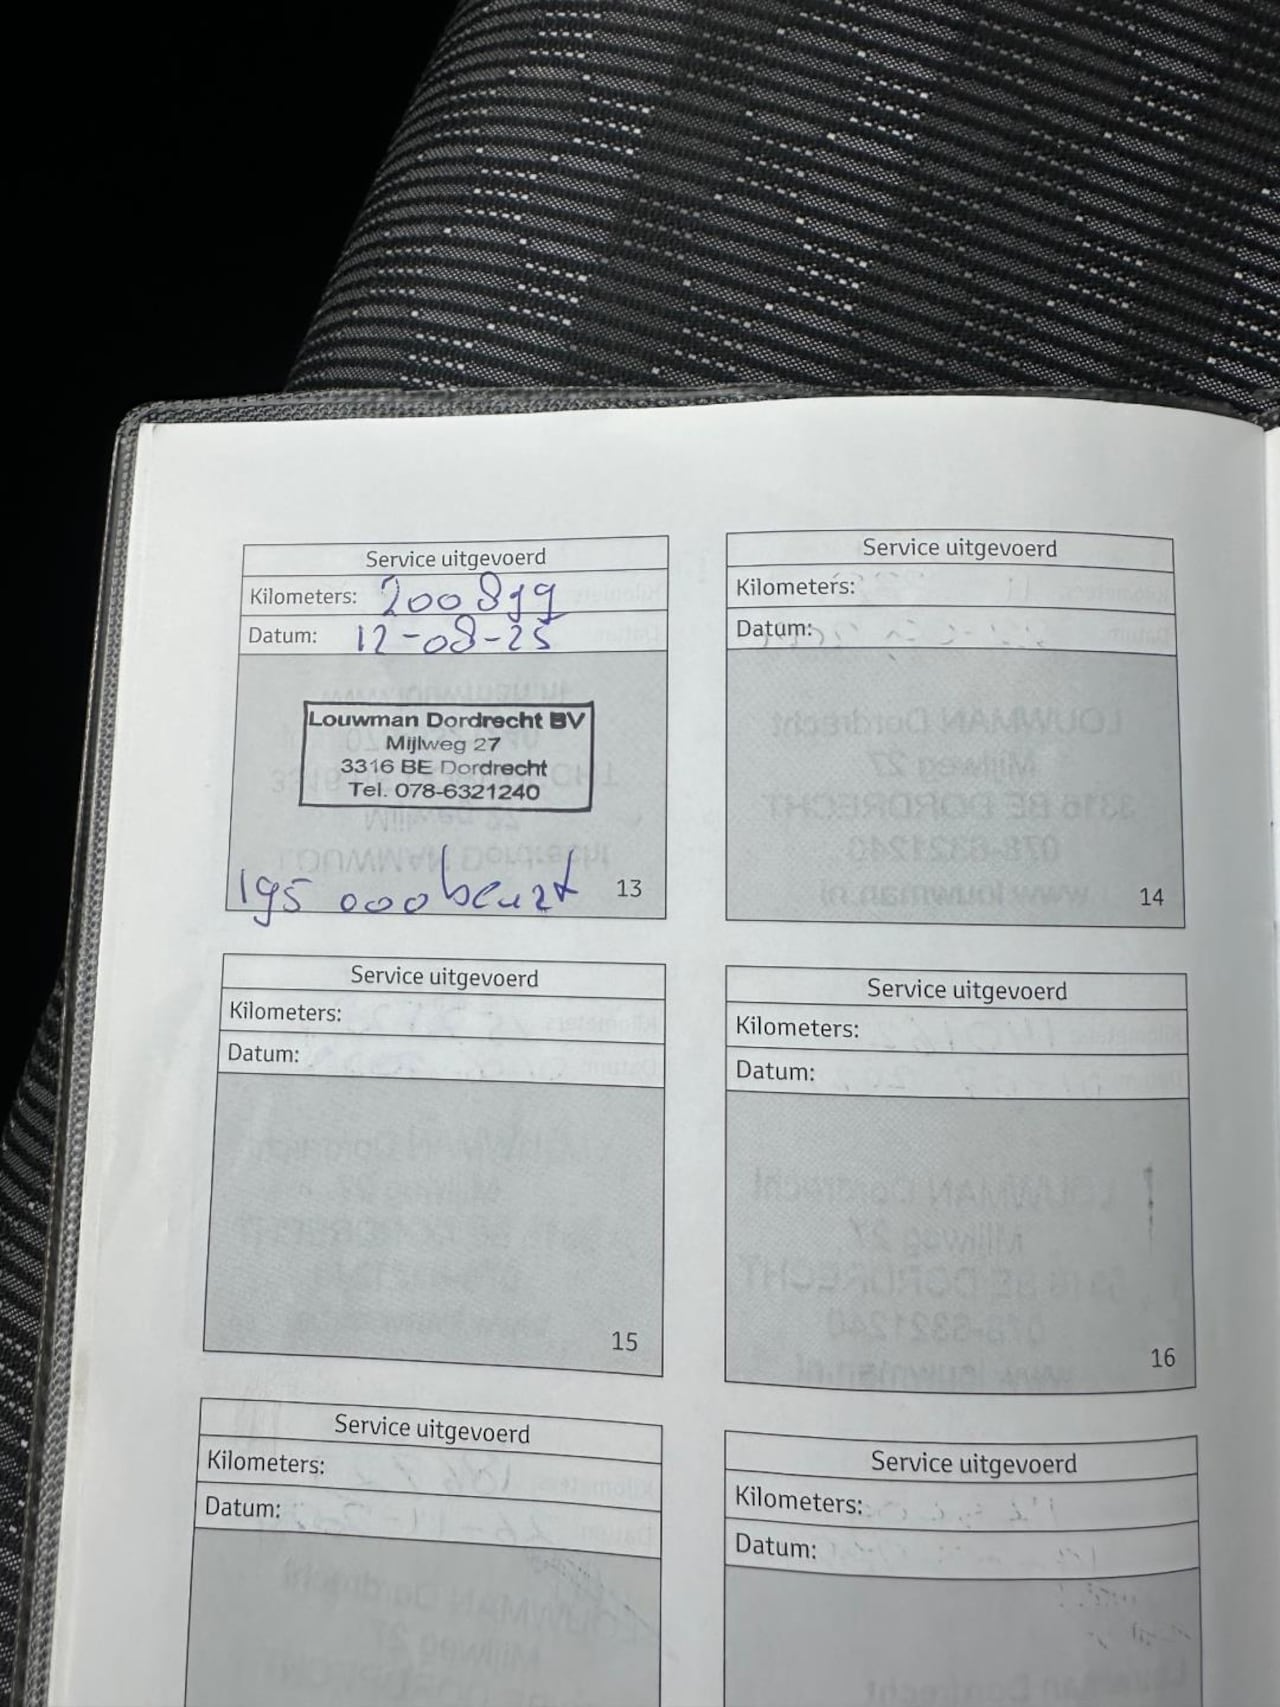 Service uitgevoerd
Kilometers: 200899
Datum: 12-08-25
Louwman Dordrecht BV
Mijlweg 27
3316 BE Dordrecht
Tel. 078-6321240
195 000 beurt
13
Service uitgevoerd
Kilometers:
Datum:
14
Service uitgevoerd
Kilometers:
Datum:
15
Service uitgevoerd
Kilometers:
Datum:
16
Service uitgevoerd
Kilometers:
Datum:
Service uitgevoerd
Kilometers:
Datum: